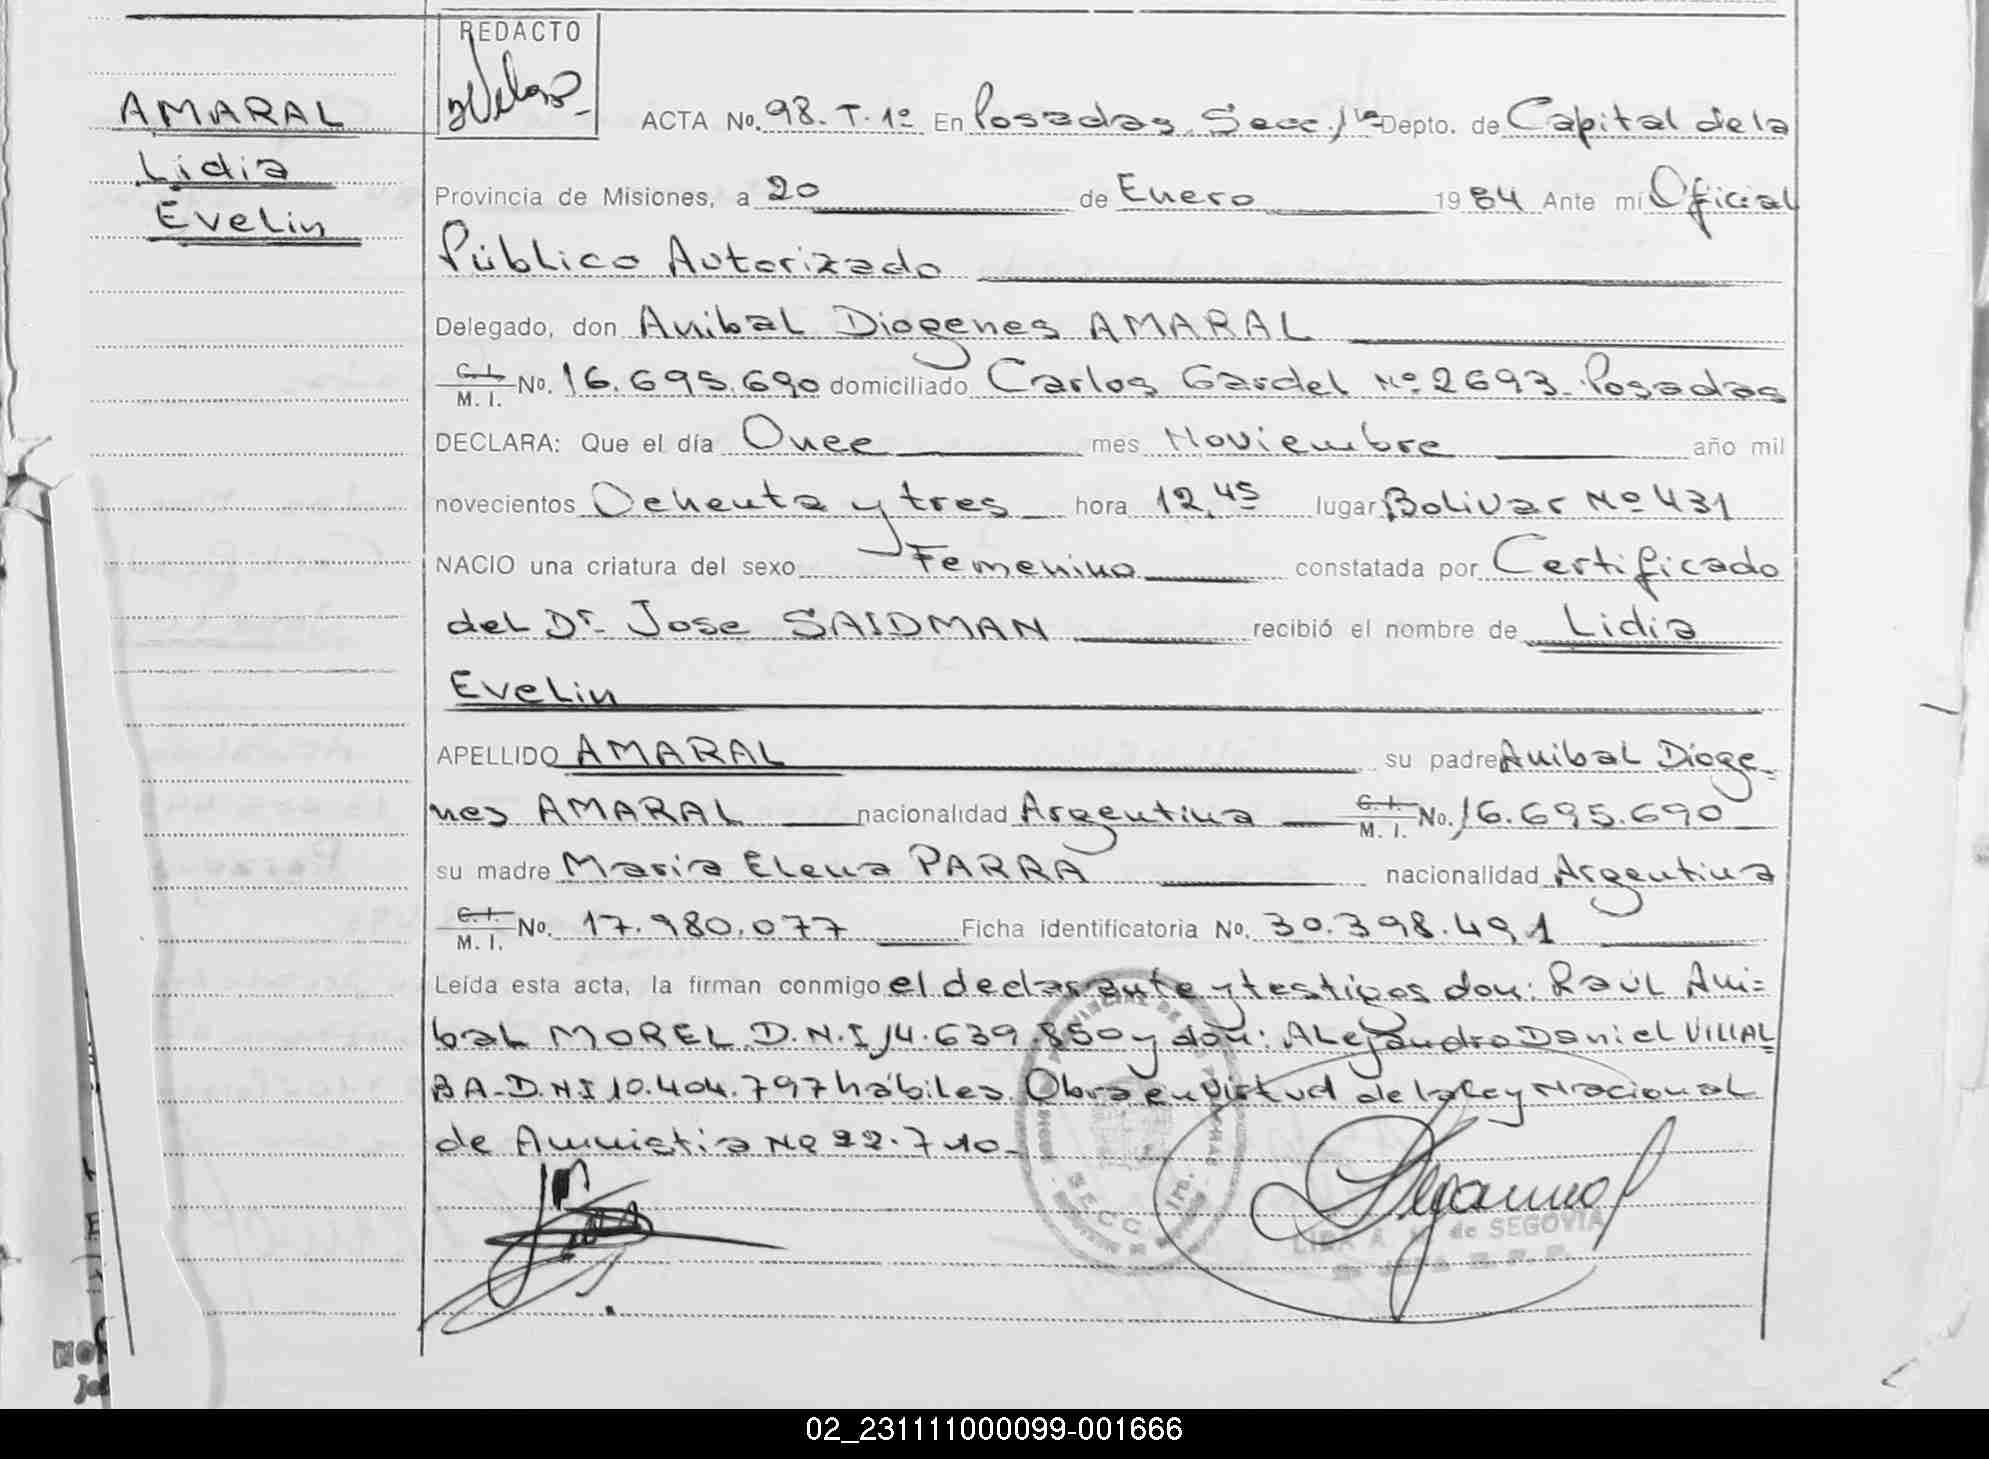 REDACTO
AMARAL
Lidia
Evelin
ACTA No. 98. T. 1º En Posadas, Secc. 1ra Depto. de Capital de la
Provincia de Misiones, a 20 de Enero 1984 Ante mí Oficial
Público Autorizado
Delegado, don Anibal Diogenes AMARAL
C. I. M. I. No. 16.695.690 domiciliado Carlos Gardel Nº 2693. Posadas
DECLARA: Que el día Once mes Noviembre año mil
novecientos Ochenta y tres hora 12,45 lugar Bolivar Nº 431
NACIO una criatura del sexo Femenino constatada por Certificado
del Dr. Jose SAIDMAN recibió el nombre de Lidia
Evelin
APELLIDO AMARAL su padre Anibal Dioge-
nes AMARAL nacionalidad Argentina C. I. M. I. No. 16.695.690
su madre Maria Elena PARRA nacionalidad Argentina
C. I. M. I. No. 17.980.077 Ficha identificatoria No. 30.398.491
Leída esta acta, la firman conmigo el declarante y testigos don: Raúl Ani=
bal MOREL D.N.I 14.639.850 y don: Alejandro Daniel VILLAL
BA-D.N.I 10.404.797 hábiles. Obra en virtud de la Ley Nacional
de Amnistia Nº 22.710.
SECC. 1ra.
de SEGOVIA
02_231111000099-001666